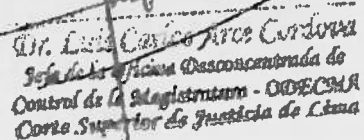 Dr. Luis Carlos Arce Cordova
Jefe de la Oficina Desconcentrada de
Control de la Magistratura - ODECMA
Corte Superior de Justicia de Lima